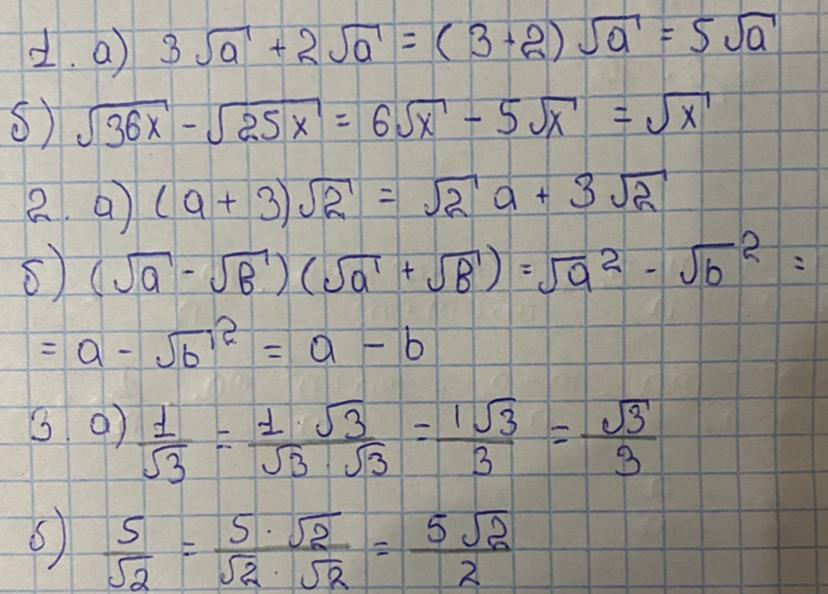 1. а) 3√a + 2√a = (3+2)√a = 5√a
б) √36x - √25x = 6√x - 5√x = √x
2. а) (a + 3)√2 = √2 a + 3√2
б) (√a - √в)(√a + √в) = √a² - √b² =
= a - √b² = a - b
3. а) 1/√3 = 1·√3/√3·√3 = 1√3/3 = √3/3
б) 5/√2 = 5·√2/√2·√2 = 5√2/2